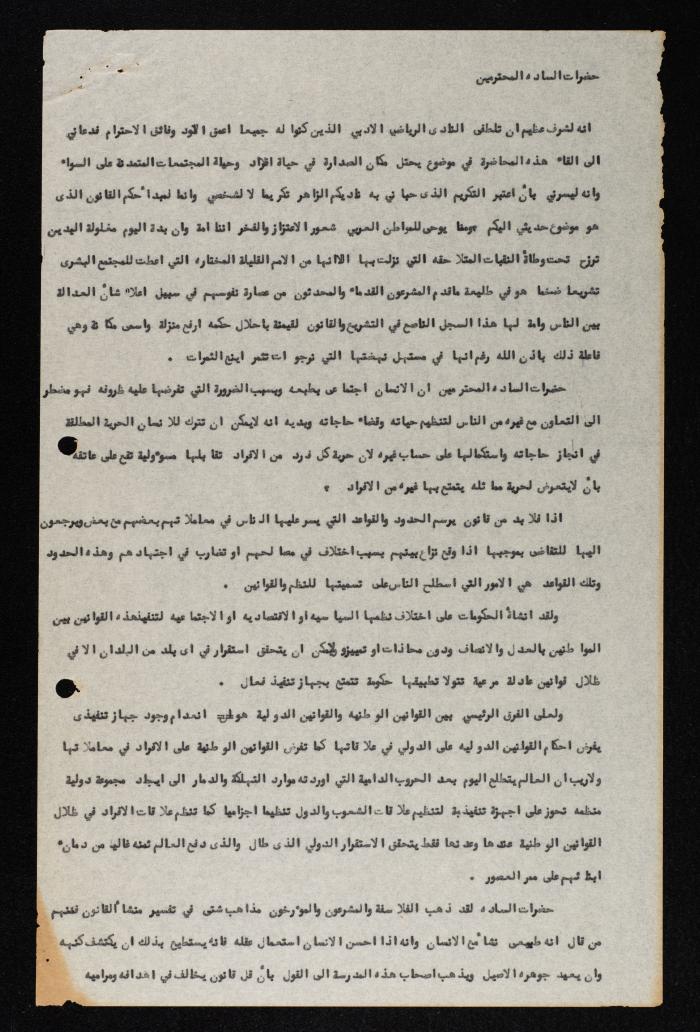 حضرات الساده المحترمين
انه لشرف عظيم ان تلطفى النادى الرياضي الادبي الذين كنوا له جميعا اعمق الود وفائق الاحترام فدعاني
الى القاء هذه المحاضرة في موضوع يحتل مكان الصدارة في حياة افراد وحياة المجتمعات المتمدنة على السواء
وانه ليسرني بأن اعتبر التكريم الذى حباني به ناديكم الزاهر تكريما لا لشخصي وانما لمبدأ حكم القانون الذى
هو موضوع حديثي اليكم ومما يوحى للمواطن العربي شعور الاعتزاز والفخر اننا امة وان بدة اليوم مغلولة اليدين
ترزح تحت وطأة النقبات المتلاحقه التي نزلت بها الا انها من الامم القليلة المختاره التي اعطت للمجتمع البشرى
تشريعا ضخما هو في طليعة ماقدم المشرعون القدماء والمحدثون من عصارة نفوسهم في سبيل اعلاء شأن العدالة
بين الناس وامة لها هذا السجل الناصع في التشريع والقانون لقيمنة باحلال حكمه ارفع منزلة واسمى مكانة وهي
فاعلة ذلك باذن الله رغم انها في مستهل نهضتها التي نرجو ات تثمر اينع الثمرات .
حضرات الساده المحترمين ان الانسان اجتماعى بطبعه وبسبب الضرورة التي تفرضها عليه ظروفه فهو مضطر
الى التعاون مع غيره من الناس لتنظيم حياته وقضاء حاجاته وبديه انه لايمكن ان تترك للانسان الحرية المطلقة
في انجاز حاجاته واستكمالها على حساب غيره لان حرية كل فرد من الافراد تقابلها مسوءولية تقع على عاتقه
بأن لايتعرض لحرية مماثله يتمتع بها غيره من الافراد ؟
اذا فلا بد من قانون يرسم الحدود والقواعد التي يسر عليها الناس في معاملاتهم بعضهم مع بعض ويرجعون
اليها للتقاضى بموجبها اذا وقع نزاع بينهم بسبب اختلاف في مصالحهم او تضارب في اجتهادهم وهذه الحدود
وتلك القواعد هي الامور التي اسطلح الناس على تسميتها للنظم والقوانين .
ولقد انشأة الحكومات على اختلاف نظمها السياسيه او الاقتصاديه او الاجتماعيه لتنفيذ هذه القوانين بين
المواطنين بالعدل والانصاف ودون محاذات او تمييز ولايمكن ان يتحقق استقرار في اى بلد من البلدان الا في
ظلال قوانين عادلة مرعية تتولا تطبيقها حكومة تتمتع بجهاز تنفيذ فعال .
ولعلى الفرق الرئيسي بين القوانين الوطنيه والقوانين الدولية هو انعدام وجود جهاز تنفيذى
يفرض احكام القوانين الدوليه على الدولي في علاقاتها كما تفرض القوانين الوطنية على الافراد في معاملاتها
ولاريب ان العالم يتطلع اليوم بعد الحروب الدامية التي اوردته موارد التهلكة والدمار الى ايجاد مجموعة دولية
منظمه تحوز على اجهزة تنفيذية لتنظيم علاقات الشعوب والدول تنظيما اجزاميا كما تنظم علاقات الافراد في ظلال
القوانين الوطنية عندها وعدنها فقط يتحقق الاستقرار الدولي الذى طال والذى دفع العالم ثمنه غاليا من دماء
ابنائهم على ممر العصور .
حضرات الساده لقد ذهب الفلاسفة والمشرعون والموءرخون مذاهب شتى في تفسير منشأ القانون فمنهم
من قال انه طبيعى نشأ مع الانسان وانه اذا احسن الانسان استعمال عقله فانه يستطيع بذلك ان يكتشف كنهه
وان يعيد جوهره الاصيل ويذهب اصحاب هذه المدرسة الى القول بأن قل قانون يخالف في اهدافه ومراميه